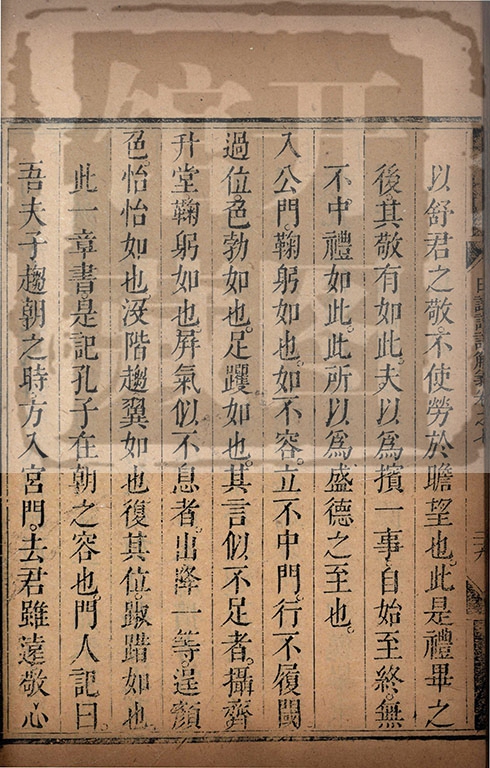 以舒君之敬。不使勞於瞻望也。此是禮畢之
後其敬有如此。夫以為擯一事。自始至終。無
不中禮如此。此所以爲盛德之至也。
入公門。鞠躬如也。如不容。立不中門。行不履閾
過位。色勃如也。足躩如也。其言似不足者。攝齊
升堂鞠躬如也。屏氣似不息者。出降一等。逞顏
色。怡怡如也。沒階趨翼如也。復其位。踧踖如也
此一章書。是記孔子在朝之容也。門人記曰。
吾夫子趨朝之時。方入宮門。去君雖遠。敬心